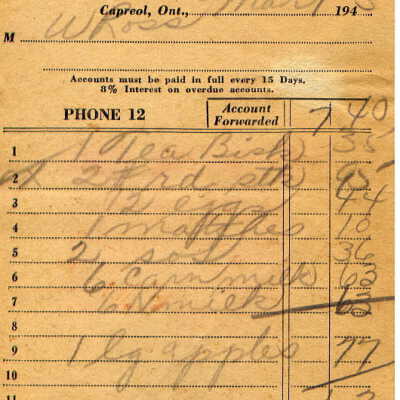 Capreol, Ont., Mar 194
M W Ross
Accounts must be paid in full every 15 Days.
8% Interest on overdue accounts.
PHONE 12 Account Forwarded 7 40
1 1 Tea Bisk 35
2 2 rd stk 95
3 12 eggs 44
4 1 matches 10
5 2 sos 36
6 6 Carn milk 63
7 6 milk 63
8
9 1 lg apples 77
10
11